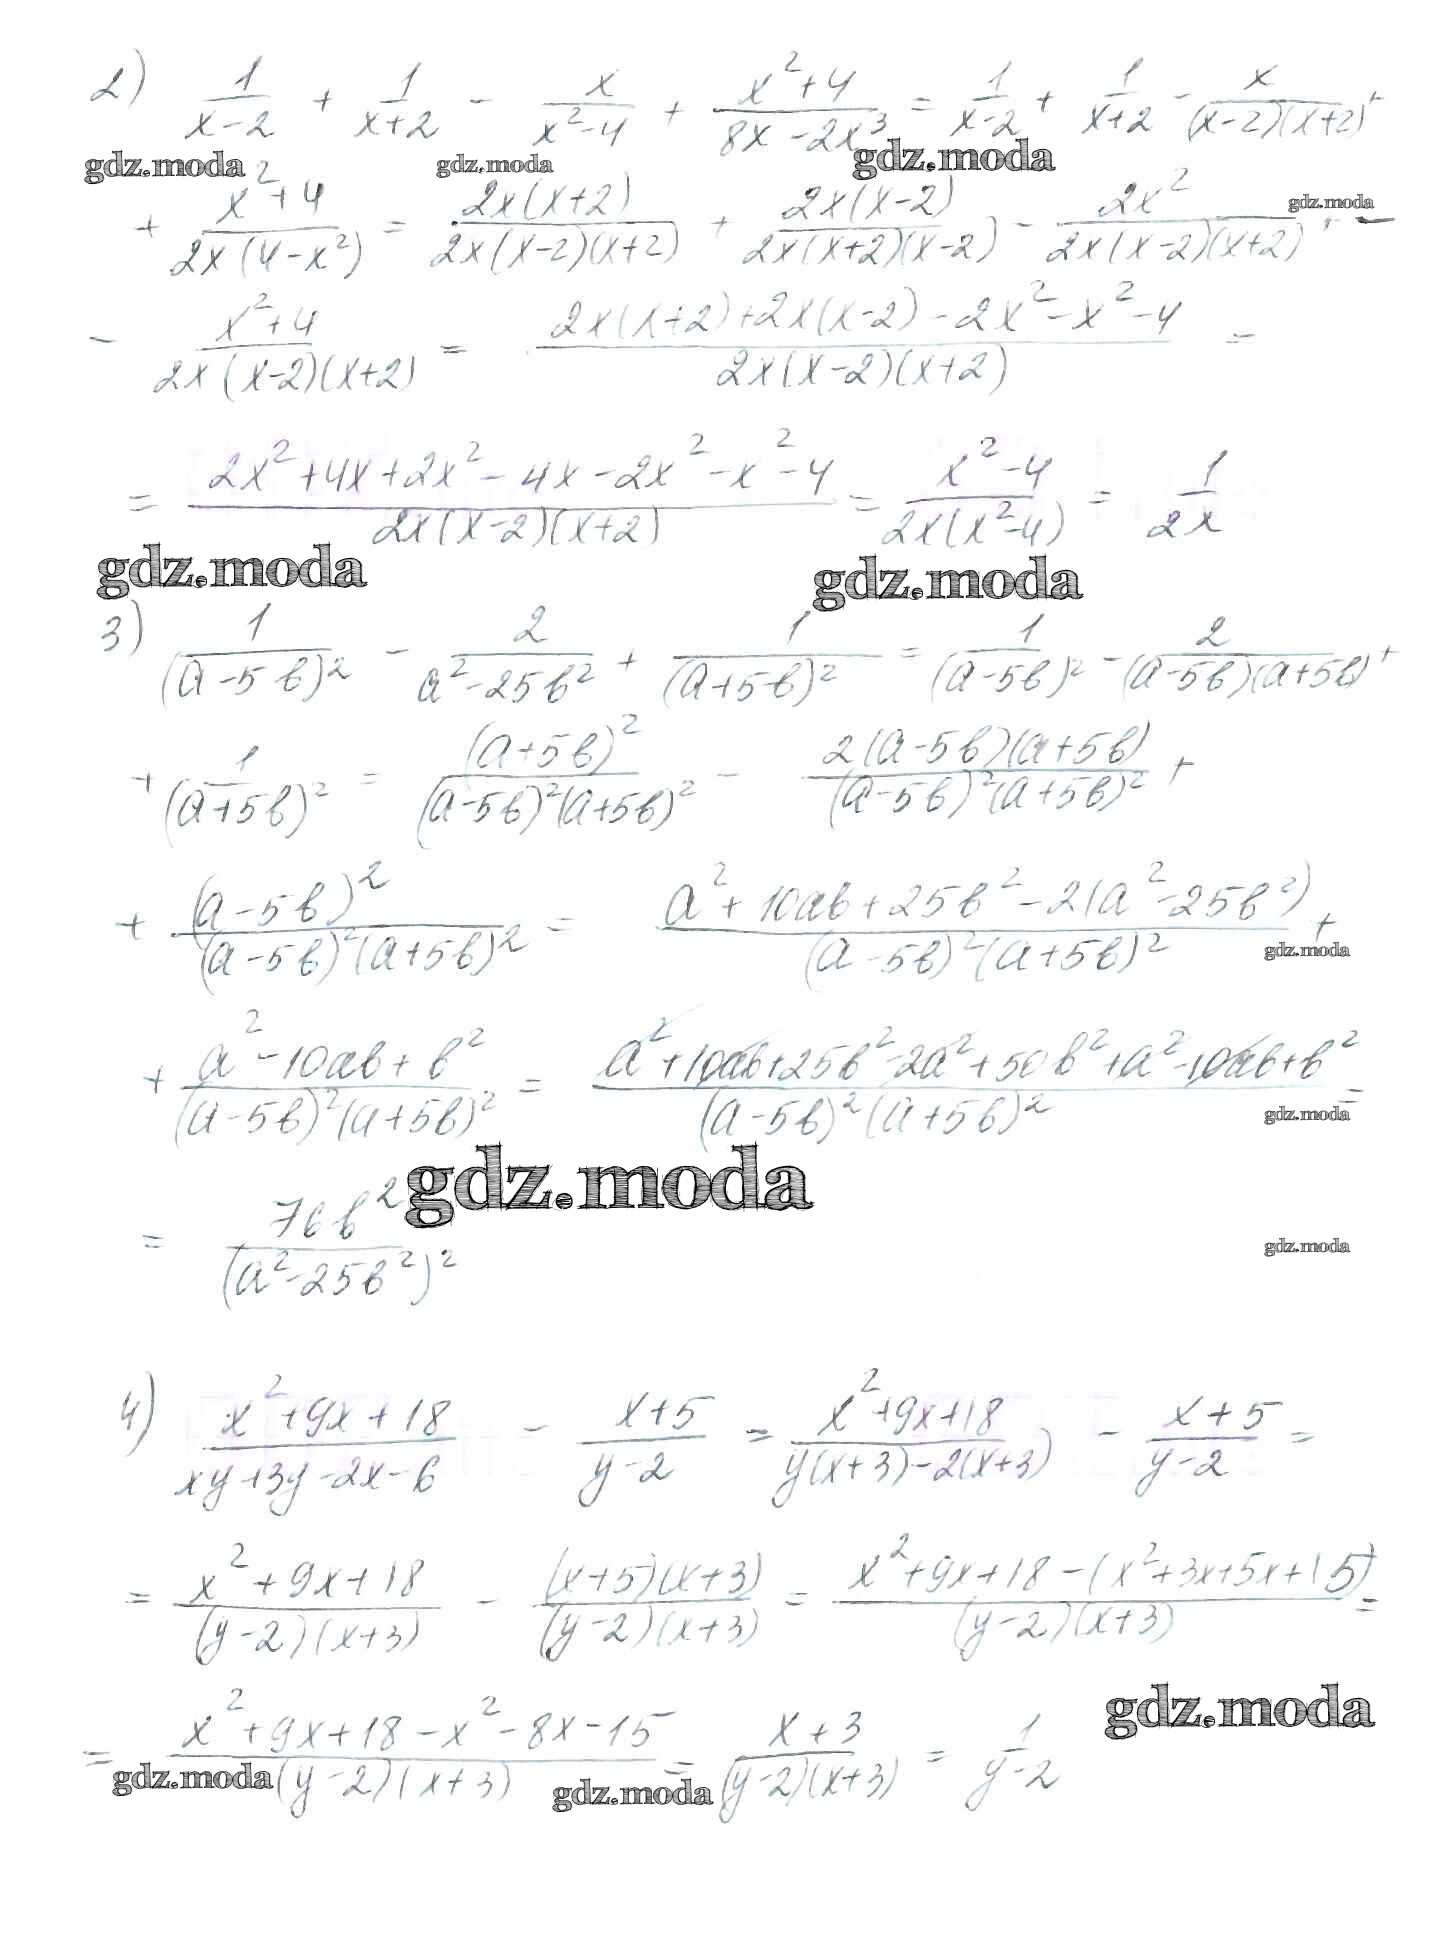 2) 1/(x-2) + 1/(x+2) - x/(x²-4) + (x²+4)/(8x-2x³) = 1/(x-2) + 1/(x+2) - x/((x-2)(x+2)) +
gdz.moda gdz.moda gdz.moda
+ (x²+4)/(2x(4-x²)) = 2x(x+2)/(2x(x-2)(x+2)) + 2x(x-2)/(2x(x+2)(x-2)) - 2x²/(2x(x-2)(x+2)) -
gdz.moda
- (x²+4)/(2x(x-2)(x+2)) = (2x(x+2)+2x(x-2)-2x²-x²-4)/(2x(x-2)(x+2)) =
= (2x²+4x+2x²-4x-2x²-x²-4)/(2x(x-2)(x+2)) = (x²-4)/(2x(x²-4)) = 1/(2x)
gdz.moda gdz.moda
3) 1/(a-5b)² - 2/(a²-25b²) + 1/(a+5b)² = 1/(a-5b)² - 2/((a-5b)(a+5b)) +
+ 1/(a+5b)² = (a+5b)²/((a-5b)²(a+5b)²) - 2(a-5b)(a+5b)/((a-5b)²(a+5b)²) +
+ (a-5b)²/((a-5b)²(a+5b)²) = (a²+10ab+25b²-2(a²-25b²))/((a-5b)²(a+5b)²) +
gdz.moda
+ (a²-10ab+b²)/((a-5b)²(a+5b)²) = (a²+10ab+25b²-2a²+50b²+a²-10ab+b²)/((a-5b)²(a+5b)²) =
gdz.moda
gdz.moda
= 76b²/(a²-25b²)²
gdz.moda
4) (x²+9x+18)/(xy+3y-2x-6) - (x+5)/(y-2) = (x²+9x+18)/(y(x+3)-2(x+3)) - (x+5)/(y-2) =
= (x²+9x+18)/((y-2)(x+3)) - (x+5)(x+3)/((y-2)(x+3)) = (x²+9x+18-(x²+3x+5x+15))/((y-2)(x+3)) =
gdz.moda
= (x²+9x+18-x²-8x-15)/((y-2)(x+3)) = (x+3)/((y-2)(x+3)) = 1/(y-2)
gdz.moda gdz.moda